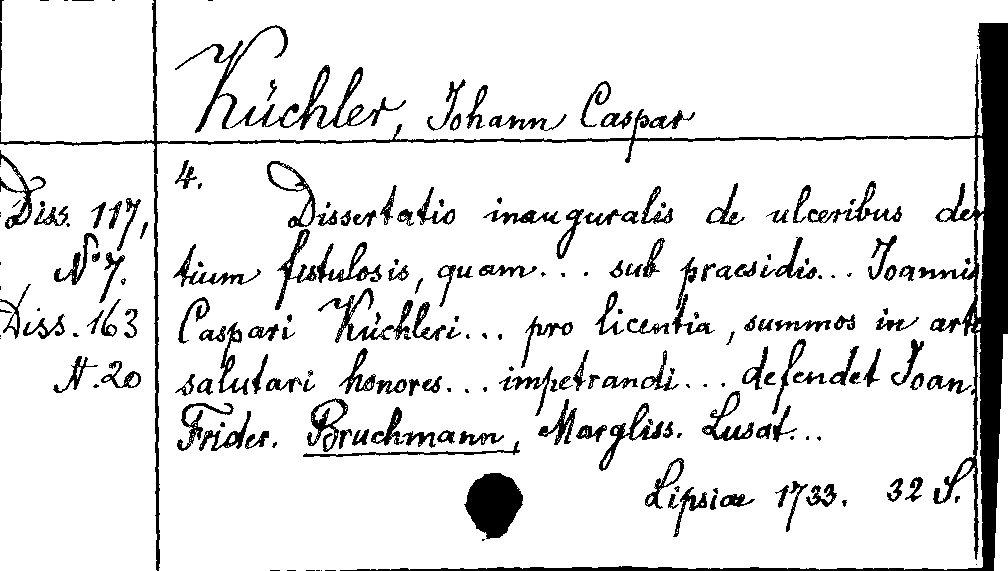 Küchler, Johann Caspar
4.
Diss. 117,
N° 7.
Diss. 163
N. 20
Dissertatio inauguralis de ulceribus den
tium fistulosis, quam... sub praesidio... Joannis
Caspari Küchleri... pro licentia, summos in arte
salutari honores... impetrandi... defendet Joan.
Frider. Bruchmann, Margliss. Lusat...
Lipsiae 1733. 32 S.